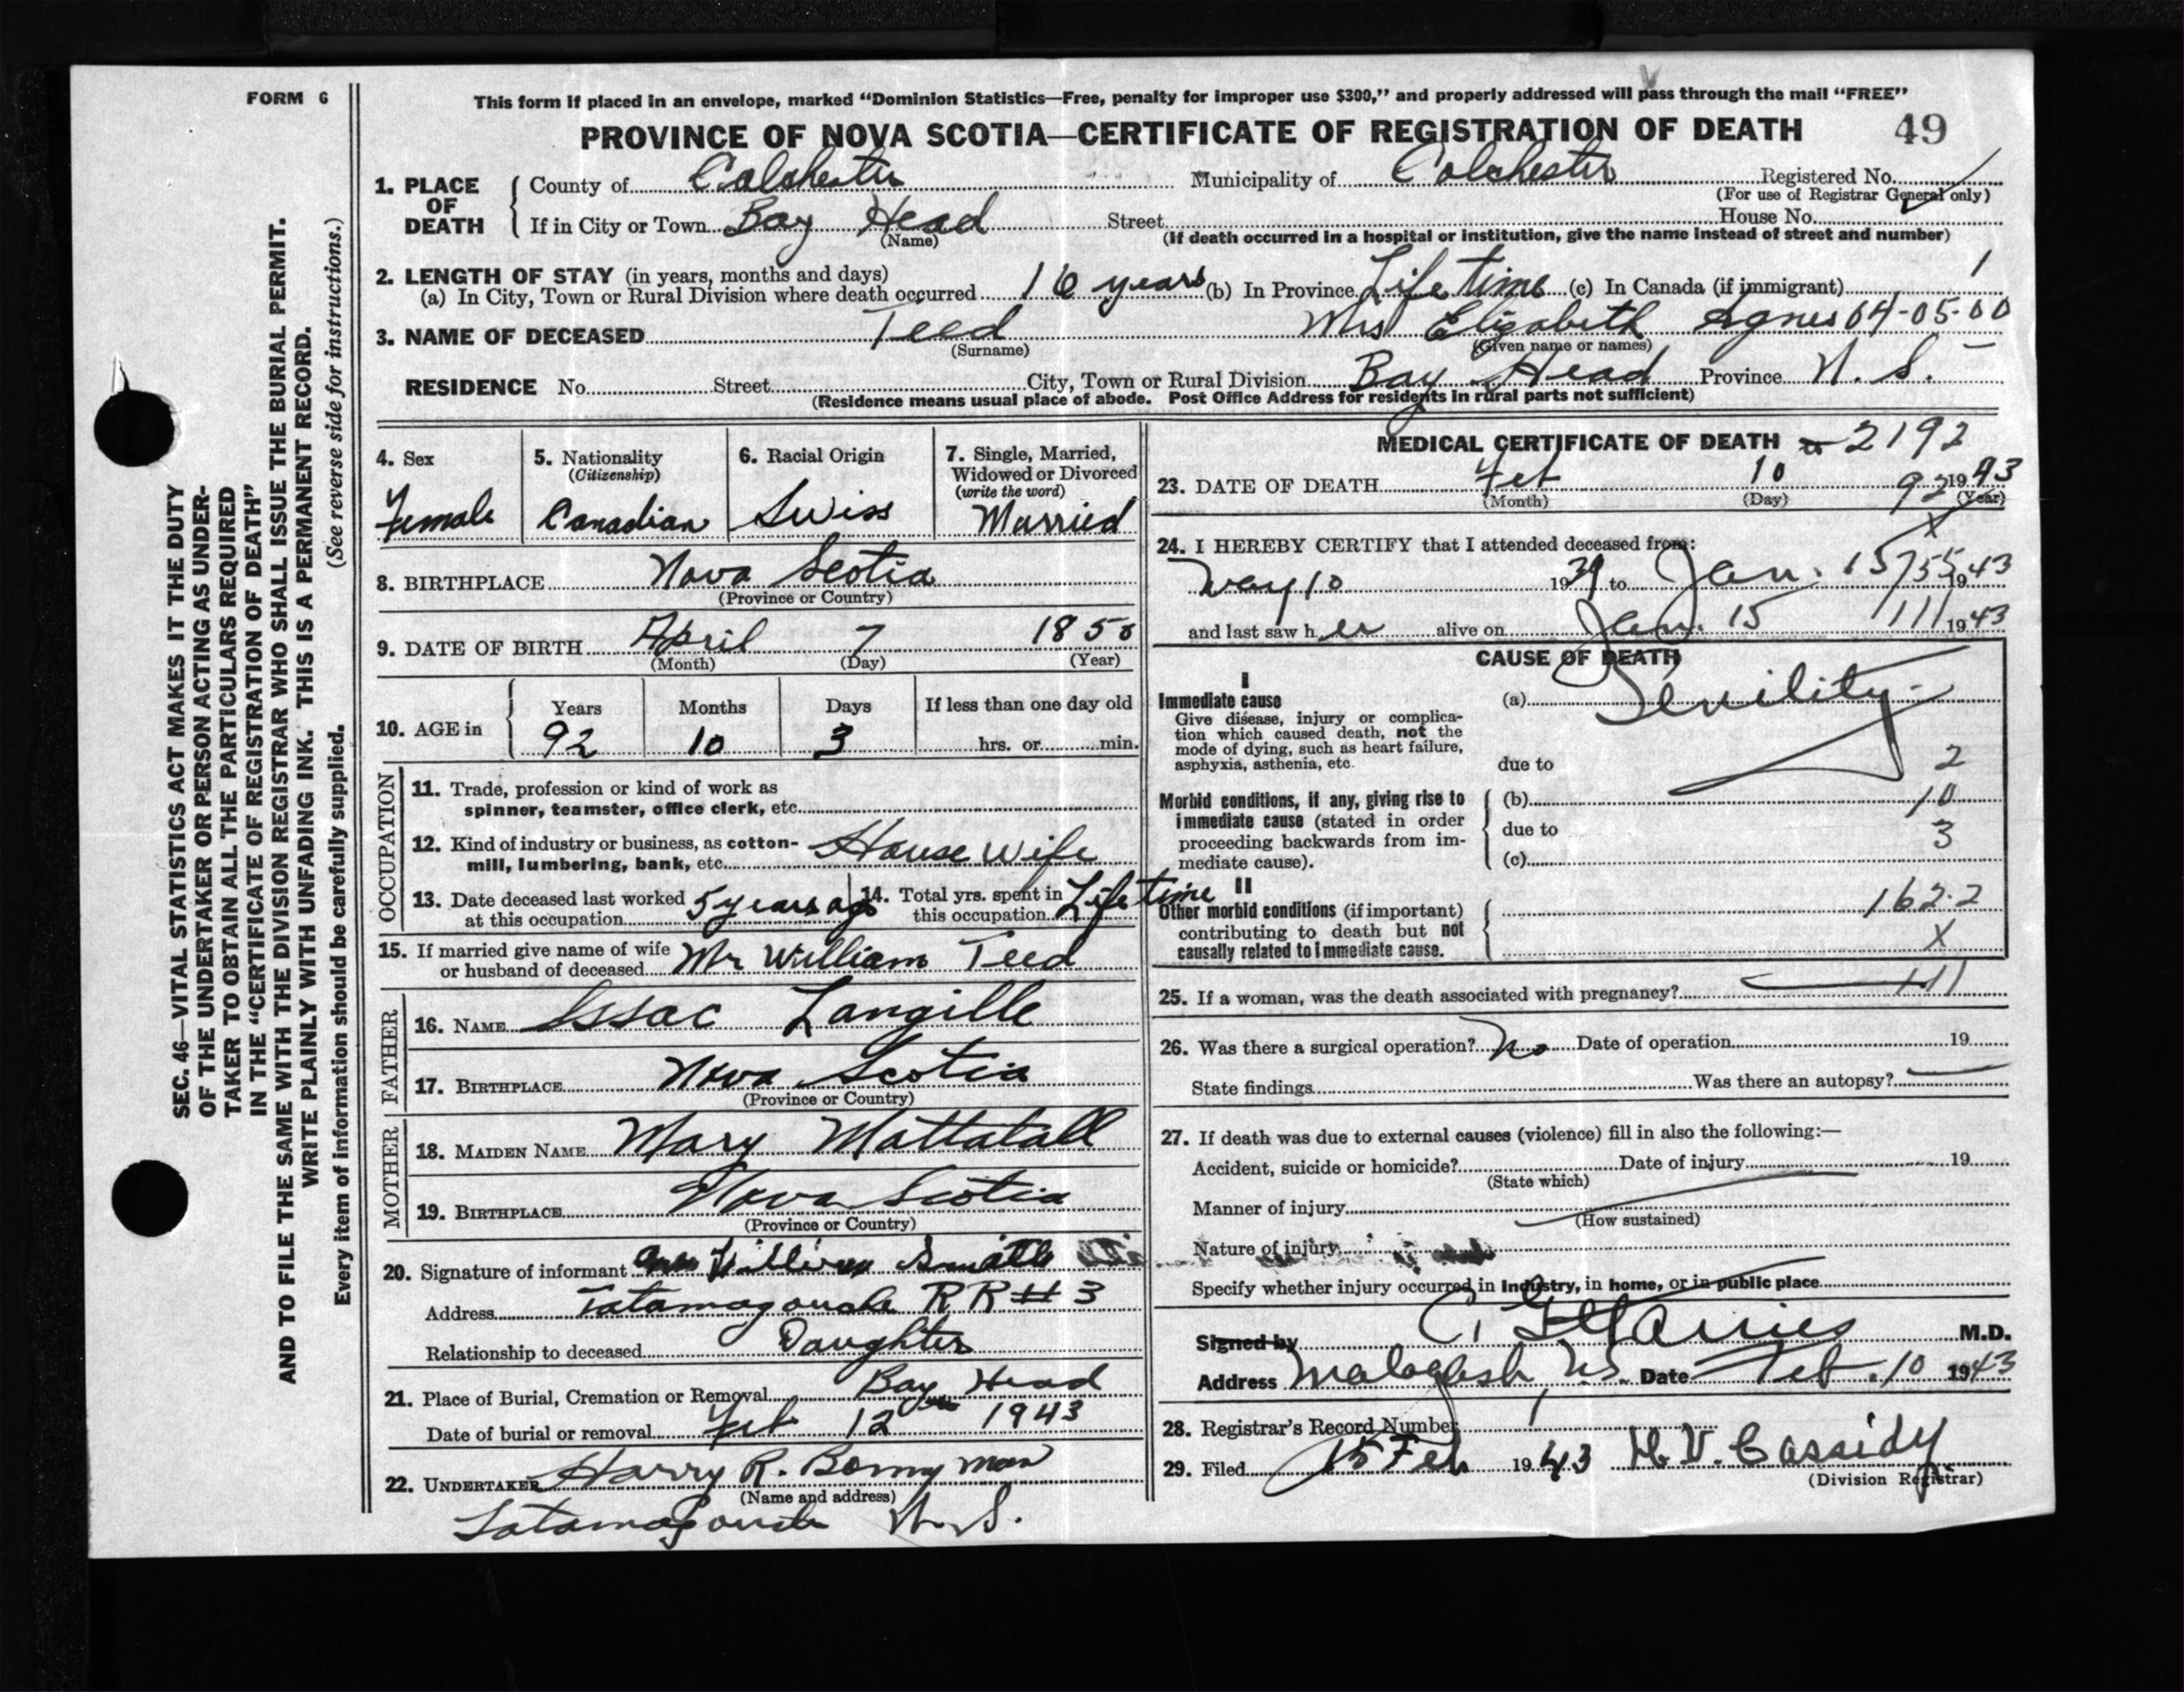 FORM 6
This form if placed in an envelope, marked "Dominion Statistics—Free, penalty for improper use $300," and properly addressed will pass through the mail "FREE"
PROVINCE OF NOVA SCOTIA—CERTIFICATE OF REGISTRATION OF DEATH 49
1. PLACE OF DEATH
County of Colchester Municipality of Colchester Registered No.
(For use of Registrar General only)
If in City or Town Bay Head Street House No.
(Name) (If death occurred in a hospital or institution, give the name instead of street and number)
2. LENGTH OF STAY (in years, months and days)
(a) In City, Town or Rural Division where death occurred 16 years (b) In Province Life time (c) In Canada (if immigrant) 1
3. NAME OF DECEASED Teed Mrs Elizabeth Agnes 04-05-00
(Surname) (Given name or names)
RESIDENCE No. Street City, Town or Rural Division Bay Head Province N. S.
(Residence means usual place of abode. Post Office Address for residents in rural parts not sufficient)
SEC. 46—VITAL STATISTICS ACT MAKES IT THE DUTY
OF THE UNDERTAKER OR PERSON ACTING AS UNDER-
TAKER TO OBTAIN ALL THE PARTICULARS REQUIRED
IN THE "CERTIFICATE OF REGISTRATION OF DEATH"
AND TO FILE THE SAME WITH THE DIVISION REGISTRAR WHO SHALL ISSUE THE BURIAL PERMIT.
WRITE PLAINLY WITH UNFADING INK. THIS IS A PERMANENT RECORD.
Every item of information should be carefully supplied. (See reverse side for instructions.)
4. Sex
Female
5. Nationality
(Citizenship)
Canadian
6. Racial Origin
Swiss
7. Single, Married,
Widowed or Divorced
(write the word)
Married
8. BIRTHPLACE Nova Scotia
(Province or Country)
9. DATE OF BIRTH April 7 1850
(Month) (Day) (Year)
10. AGE in
Years Months Days If less than one day old
92 10 3 hrs. or min.
OCCUPATION
11. Trade, profession or kind of work as
spinner, teamster, office clerk, etc.
12. Kind of industry or business, as cotton-
mill, lumbering, bank, etc. House wife
13. Date deceased last worked
at this occupation 5 years ago
14. Total yrs. spent in
this occupation Life time
15. If married give name of wife
or husband of deceased Mr William Teed
FATHER
16. NAME Issac Langille
17. BIRTHPLACE Nova Scotia
(Province or Country)
MOTHER
18. MAIDEN NAME Mary Mattatall
19. BIRTHPLACE Nova Scotia
(Province or Country)
20. Signature of informant
Address Tatamagouche R R # 3
Relationship to deceased Daughter
21. Place of Burial, Cremation or Removal Bay Head
Date of burial or removal Feb 12 1943
22. UNDERTAKER Harry R. Bonnyman
(Name and address)
Tatamagouche N. S.
MEDICAL CERTIFICATE OF DEATH 2192
23. DATE OF DEATH Feb 10 92 1943
(Month) (Day) (Year)
X
24. I HEREBY CERTIFY that I attended deceased from:
May 10 1939 to Jan. 15 1943
and last saw her alive on Jan. 15 111 1943
CAUSE OF DEATH
I
Immediate cause
Give disease, injury or complica-
tion which caused death, not the
mode of dying, such as heart failure,
asphyxia, asthenia, etc.
(a) Senility
due to 2
Morbid conditions, if any, giving rise to
immediate cause (stated in order
proceeding backwards from im-
mediate cause).
(b) 10
due to 3
(c)
II
Other morbid conditions (if important)
contributing to death but not
causally related to immediate cause.
162.2
X
25. If a woman, was the death associated with pregnancy? 111
26. Was there a surgical operation? No Date of operation 19
State findings Was there an autopsy?
27. If death was due to external causes (violence) fill in also the following:—
Accident, suicide or homicide? Date of injury 19
(State which)
Manner of injury
(How sustained)
Nature of injury
Specify whether injury occurred in industry, in home, or in public place
Signed by M.D.
Address Malagash N.S. Date Feb. 10 1943
28. Registrar's Record Number 1
29. Filed 15 Feb 1943 H. V. Cassidy
(Division Registrar)